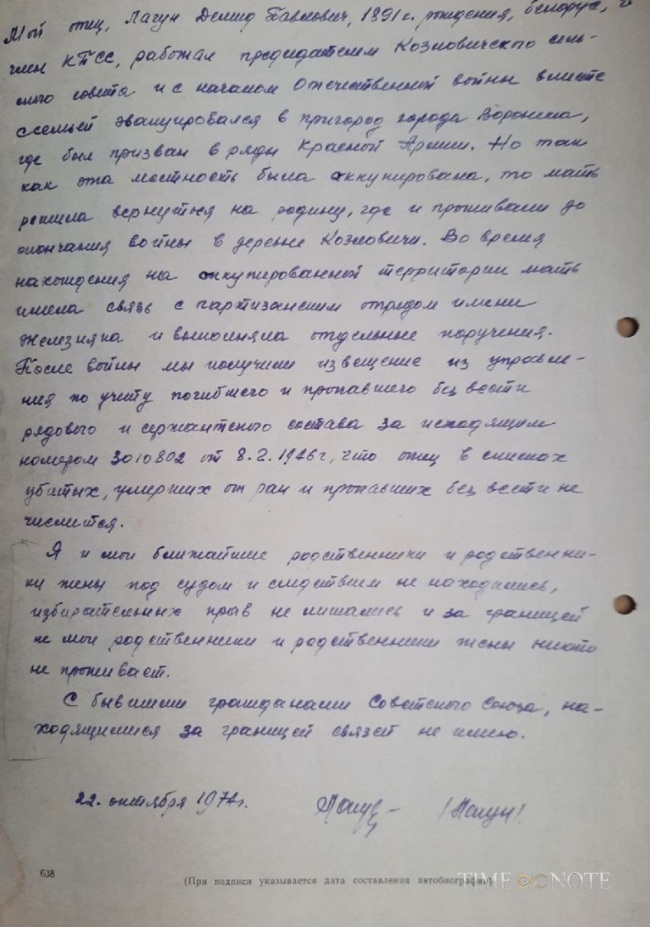 Мой отец, Лагун Демид Павлович, 1891 г. рождения, белорус,
член КПСС, работал председателем Козловичского сель-
ского совета и с началом Отечественной войны вместе
с семьей эвакуировался в пригород города Воронежа,
где был призван в ряды Красной Армии. Но так
как эта местность была оккупирована, то мать
решила вернуться на родину, где и проживали до
окончания войны в деревне Козловичи. Во время
нахождения на оккупированной территории мать
имела связь с партизанским отрядом имени
Железняка и выполняла отдельные поручения.
После войны мы получили извещение из управле-
ния по учету погибшего и пропавшего без вести
рядового и сержантского состава за исходящим
номером 3010802 от 8.2.1946г, что отец в списках
убитых, умерших от ран и пропавших без вести не
числится.
Я и мои ближайшие родственники и родственни-
ки жены под судом и следствием не находились,
избирательных прав не лишались и за границей
не мои родственники и родственники жены никто
не проживает.
С бывшими гражданами Советского Союза, на-
ходящимися за границей связей не имею.
22. октября 1974г. /Лагун/
638
(При подписи указывается дата составления автобиографии)
TIME NOTE